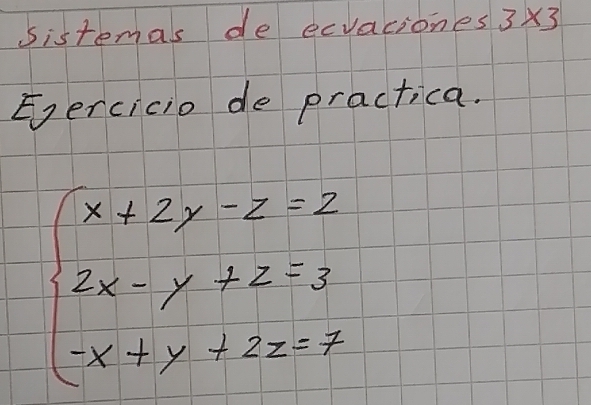 Sistemas de ecuaciones 3x3
Ejercicio de practica.
x + 2y - z = 2
2x - y + z = 3
-x + y + 2z = 7